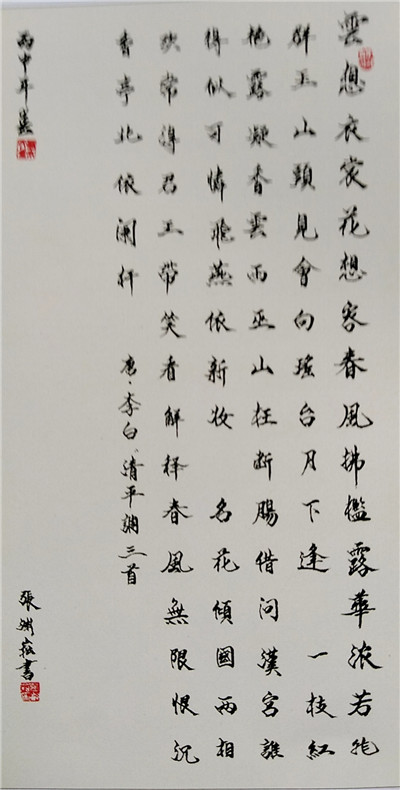 雲想衣裳花想容春風拂檻露華浓若非
群玉山頭見會向瑤台月下逢 一枝紅
艳露凝香雲雨巫山枉断腸借問漢宮誰
得似可憐飛燕依新妝 名花傾國两相
欢常得君王帶笑看解释春風無限恨沉
香亭北依闌杆 唐·李白 清平調三首
丙申年
張渊書